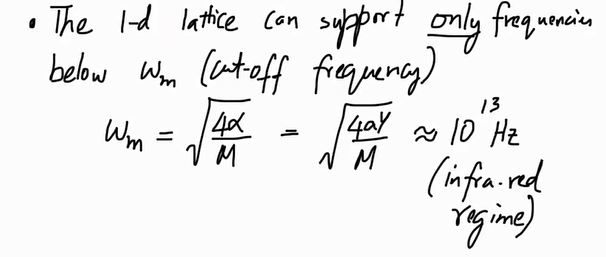 • The 1-d lattice can support only frequencies
below ωm (cut-off frequency)
ωm = √(4α/M) = √(4aY/M) ≈ 10^13 Hz
(infra-red
regime)